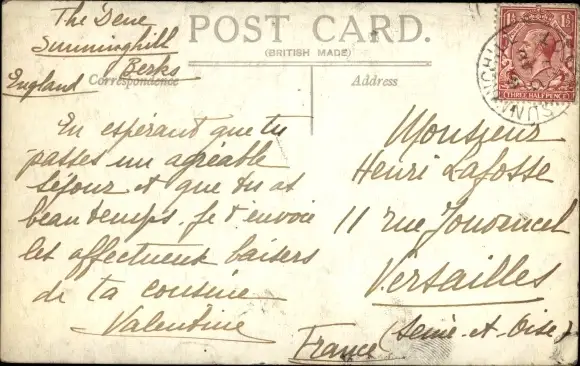 The Dene
Sunninghill
Berks
England
POST CARD.
(BRITISH MADE)
Correspondence
Address
1½ 1½
THREE HALFPENCE
En espérant que tu
passes un agréable
séjour et que tu as
beau temps. Je t'envoie
les affectueux baisers
de ta cousine
Valentine
Monsieur
Henri Lafosse
11 rue Jouvencel
Versailles
(Seine-et-Oise)
France